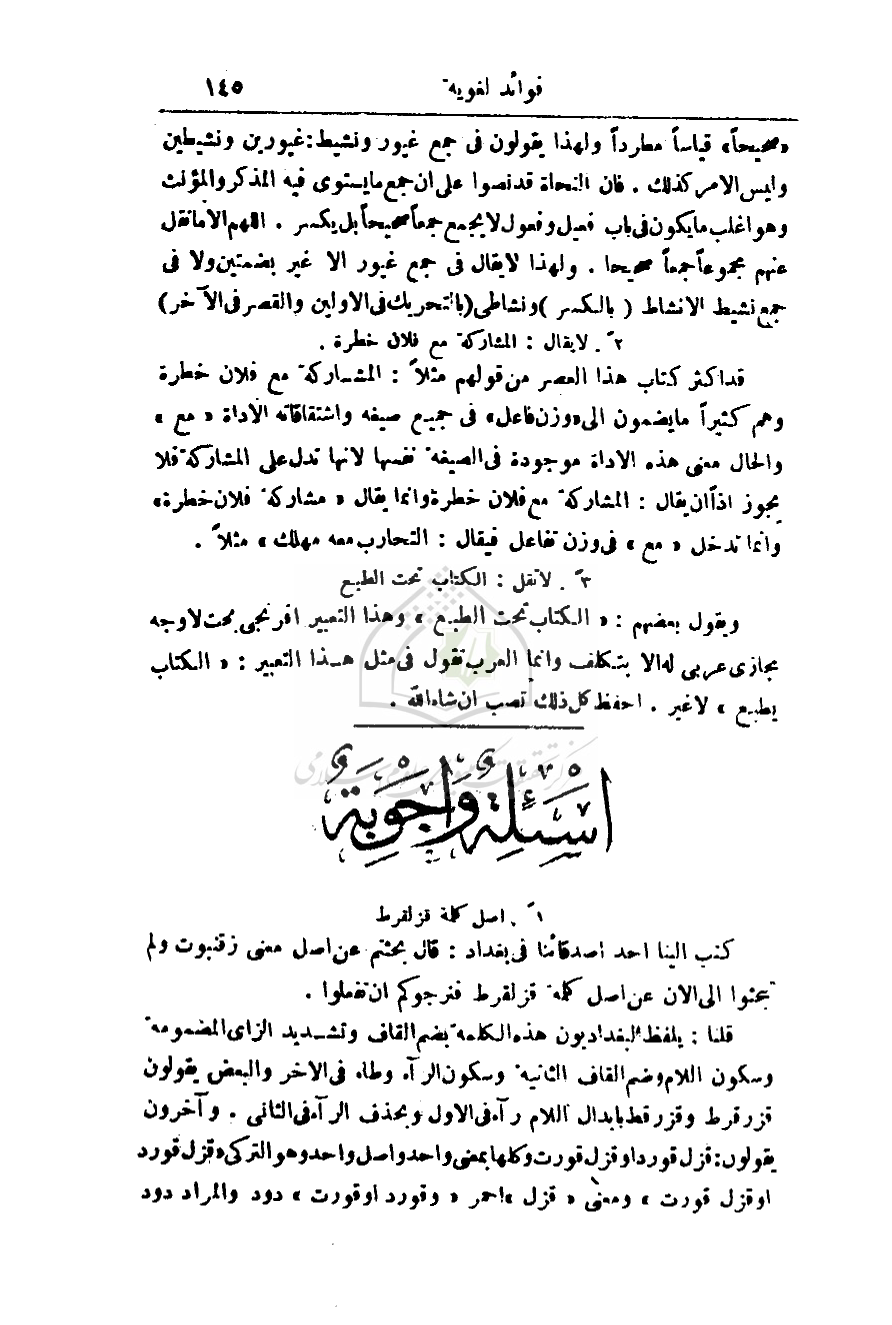 فوائد لغوية ١٤٥
«صحيحاً» قياساً مطرداً ولهذا يقولون فى جمع غيور ونشيط: غيورين ونشيطين
وليس الامر كذلك . فان النحاة قد نصوا على ان جمع ما يستوى فيه المذكر والمؤنث
وهو اغلب ما يكون فى باب فعيل وفعول لا يجمع جمعاً صحيحاً بل يكسر . اللهم الا ما نقل
عنهم مجموعاً جمعاً صحيحا . ولهذا لا يقال فى جمع غيور الا غير بضمتين ولا فى
جمع نشيط الا نشاط ( بالكسر ) ونشاطى (بالتحريك فى الاولين والقصر فى الآخر)
٢ً . لا يقال : المشاركة مع فلان خطرة .
قد اكثر كتاب هذا العصر من قولهم مثلاً : المشاركة مع فلان خطرة
وهم كثيراً ما يضمون الى «وزن فاعل» فى جميع صيغه واشتقاقاته الأداة « مع »
والحال معنى هذه الاداة موجودة فى الصيغة نفسها لانها تدل على المشاركة فلا
يجوز اذاً ان يقال : المشاركة مع فلان خطرة وانما يقال « مشاركة فلان خطرة»
وانما تدخل « مع » فى وزن تفاعل فيقال : التحارب معه مهلك » مثلاً .
٣ً . لا تقل : الكتاب تحت الطبع
ويقول بعضهم : « الكتاب تحت الطبع » وهذا التعبير افرنجى بحت لا وجه
مجازى عربى له الا بتكلف وانما العرب تقول فى مثل هذا التعبير : « الكتاب
يطبع » لا غير . احفظ كل ذلك تصب ان شاء الله .
اسئلة واجوبة
١ً . اصل كلمة قزلقرط
كتب الينا احد اصدقائنا فى بغداد : قال بحثتم عن اصل معنى زقنبوت ولم
تبحثوا الى الان عن اصل كلمة قزلقرط فنرجوكم ان تفعلوا .
قلنا : يلفظ البغداديون هذه الكلمة بضم القاف وتشديد الزاى المضمومة
وسكون اللام وضم القاف الثانية وسكون الرآء وطاء فى الاخر والبعض يقولون
قزرقرط وقزرقط بابدال اللام رآء فى الاول وبحذف الرآء فى الثانى . وآخرون
يقولون: قزل قورد او قزل قورت وكلها بمعنى واحد واصل واحد وهو التركى «قزل قورد
او قزل قورت » ومعنى « قزل » احمر « وقورد او قورت » دود والمراد دود